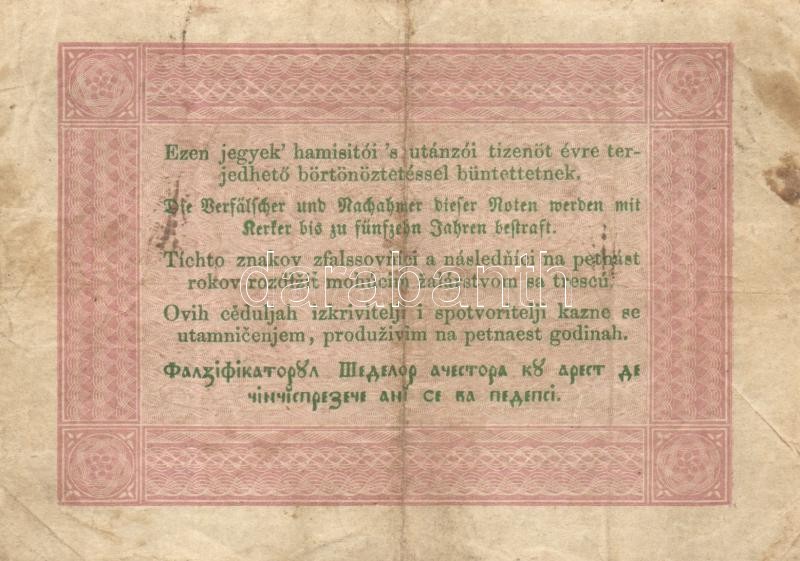 Ezen jegyek’ hamisitói ’s utánzói tizenöt évre ter-
jedhető börtönöztetéssel büntettetnek.
Die Verfälscher und Nachahmer dieser Noten werden mit
Kerker bis zu fünfzehn Jahren bestraft.
Tíchto znakov zfalssovilci a následňíci na petnást
rokov rozťažit mohúcím žalárstvom sa trescú.
Ovih cěduljah izkrivitelji i spotvoritelji kazne se
utamničenjem, produživim na petnaest godinah.
Фалзіфікаторꙋл Шеделор ачестора кꙋ арест де
чінчіспрезече ані се ва педепсі.
darabanth